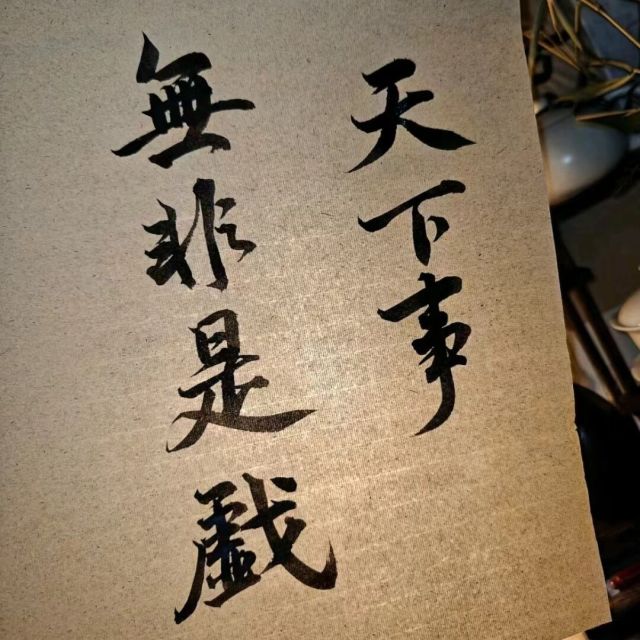 天下事
無非是戲